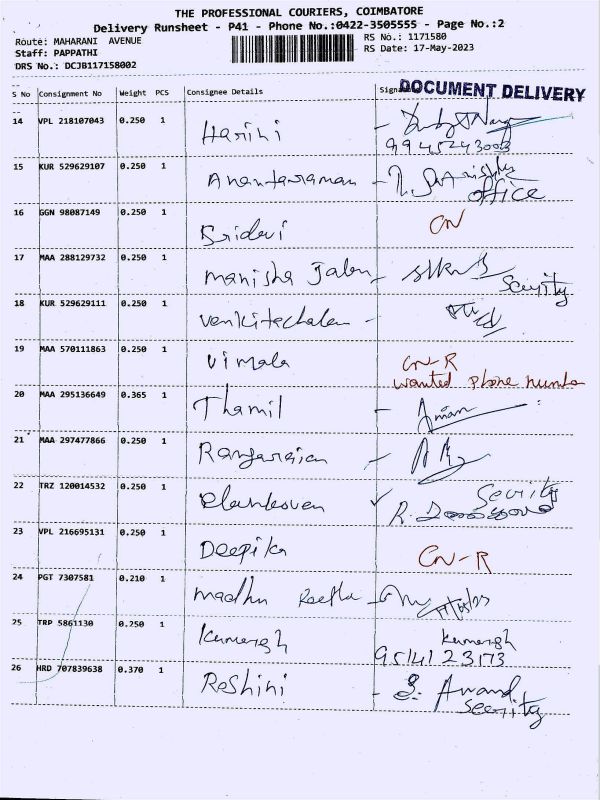 THE PROFESSIONAL COURIERS, COIMBATORE
Delivery Runsheet - P41 - Phone No.:0422-3505555 - Page No.:2
Route: MAHARANI AVENUE
RS No.: 1171580
Staff: PAPPATHI
RS Date: 17-May-2023
DRS No.: DCJB117158002
DOCUMENT DELIVERY
S No Consignment No Weight PCS Consignee Details
14 VPL 218107043 0.250 1 Harini
9945243003
15 KUR 529629107 0.250 1 Anantaraman
office
16 GGN 98087149 0.250 1 Sridevi CN
17 MAA 288129732 0.250 1 Manisha
Security
18 KUR 529629111 0.250 1 Venkitechalam
19 MAA 570111863 0.250 1 Vimala CN-R
wanted phone number
20 MAA 295136649 0.365 1 Thamil
21 MAA 297477866 0.250 1 Rangarajan
22 TRZ 120014532 0.250 1 Security
R.
23 VPL 216695131 0.250 1 Deepika CN-R
24 PGT 7307581 0.210 1 Madhu
25 TRP 5861130 0.250 1 Kumaresh Kumaresh
9514123173
26 HRD 707839638 0.370 1 Reshini - S. Anand
Security